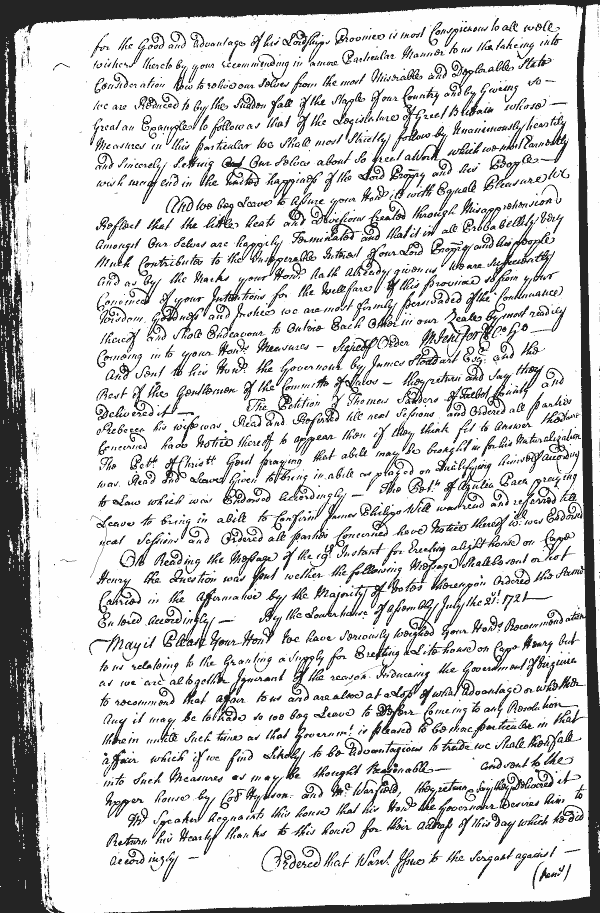 for the Good and advantage of his Lordships Province is most Conspicuous to all well
wishers thereby your Recommending in a more Particular Manner to us the takeing into
Consideration how to relive our Selves from the most Miserable and Deplorable State
we are Reduced to by the Sudden fall of the Staple of our Country and by Giveing so
Great an Example to follow as that of the Legislature of Great Brittain whose
Measures in this particular We Shall most Strictly follow by Unanimously heartily
and Sincerely Setting our Selves about So great a Work which we most Earnestly
wish may end in the united happiness of the Lord Propry and his People
And we beg Leave to assure your Honr it is with Equale Pleasure We
Reflect that the little heats and Divissions Created through Misapprehensions
Amongst Our Selves are happily Terminated and that it in all Probabillity Very
Much Contributes to the Inseperable Interest of our Lord Propry and his people
and as by the Marks your Honr hath already given us we are Sufficiently
Convinced of your Intentions for the Wellfare of this province So from your
Wisdom Goodness and Justice we are most firmly perswaded of the Continuance
thereof and Shall Endeavour to Outvie Each Other in our Zeale by most readily
Comeing in to your Honrs Measures - Signed p Order M Jenifer Cl Lo Ho
And Sent to his Honr the Governour by James Stoddart Esqr and the
Rest of the Gentlemen of the Committe of Laws - they return and Say they
Delivered it -
The Petition of Thomas Sanders of Talbot County and
Rebecca his wife was Read and Referred till next Sessions and Ordered all parties
Concerned have Notice thereof to appear then if they think fit to Answer the Same
The Petn of Christr Geist praying that a bill may be brought in for his Naturalization
was Read and Leave Given to bring in a bill as prayed on Quallifying himself According
to Law which was Endorsed Accordingly - The Petn of Aquila Paca praying
Leave to bring in a bill to Confirm James Philipps Will was read and referred till
next Sessions and Ordered all parties Concerned have Notice thereof wch was Endorsed
On Reading the Message of the 19th Instant for Erecting a light house on Cape
Henry the Question was put wether the following Message Shall be sent or not
Carried in the Affermative by the Majority of Votes thereupon Ordered the Same
Entered Accordingly - By the Lower house of Assembly July the 21st 1721
May it Please Your Honr We have Seriously weighed your Honrs Recommendation
to us relateing to the Granting a Supply for Erecting a Lite house on Cape Henry but
as we are altogether Ignorant of the reason Induceing the Government of Virginia
to recommend that affair to us and are alsoe at a Loss of what Advantage or whether
Any it may be to trade so we beg Leave to Deferr Comeing to any Resolution
therein untill Such time as that Governmt is pleased to be more particular in that
affair which if we find Likely to be Advantagious to trade we Shall then fall
into Such Measures as may be thought Reasonable - and Sent to the
upper house by Colo Hynson and Mr Warfield, they return Say they Delivered it
Mr Speaker Acquaints this house that his Honr the Governour Desires him to
Return his Hearty thanks to this house for their Address of this day which he did
accordingly -
Ordered that Warrt Issue to the Sergant against -